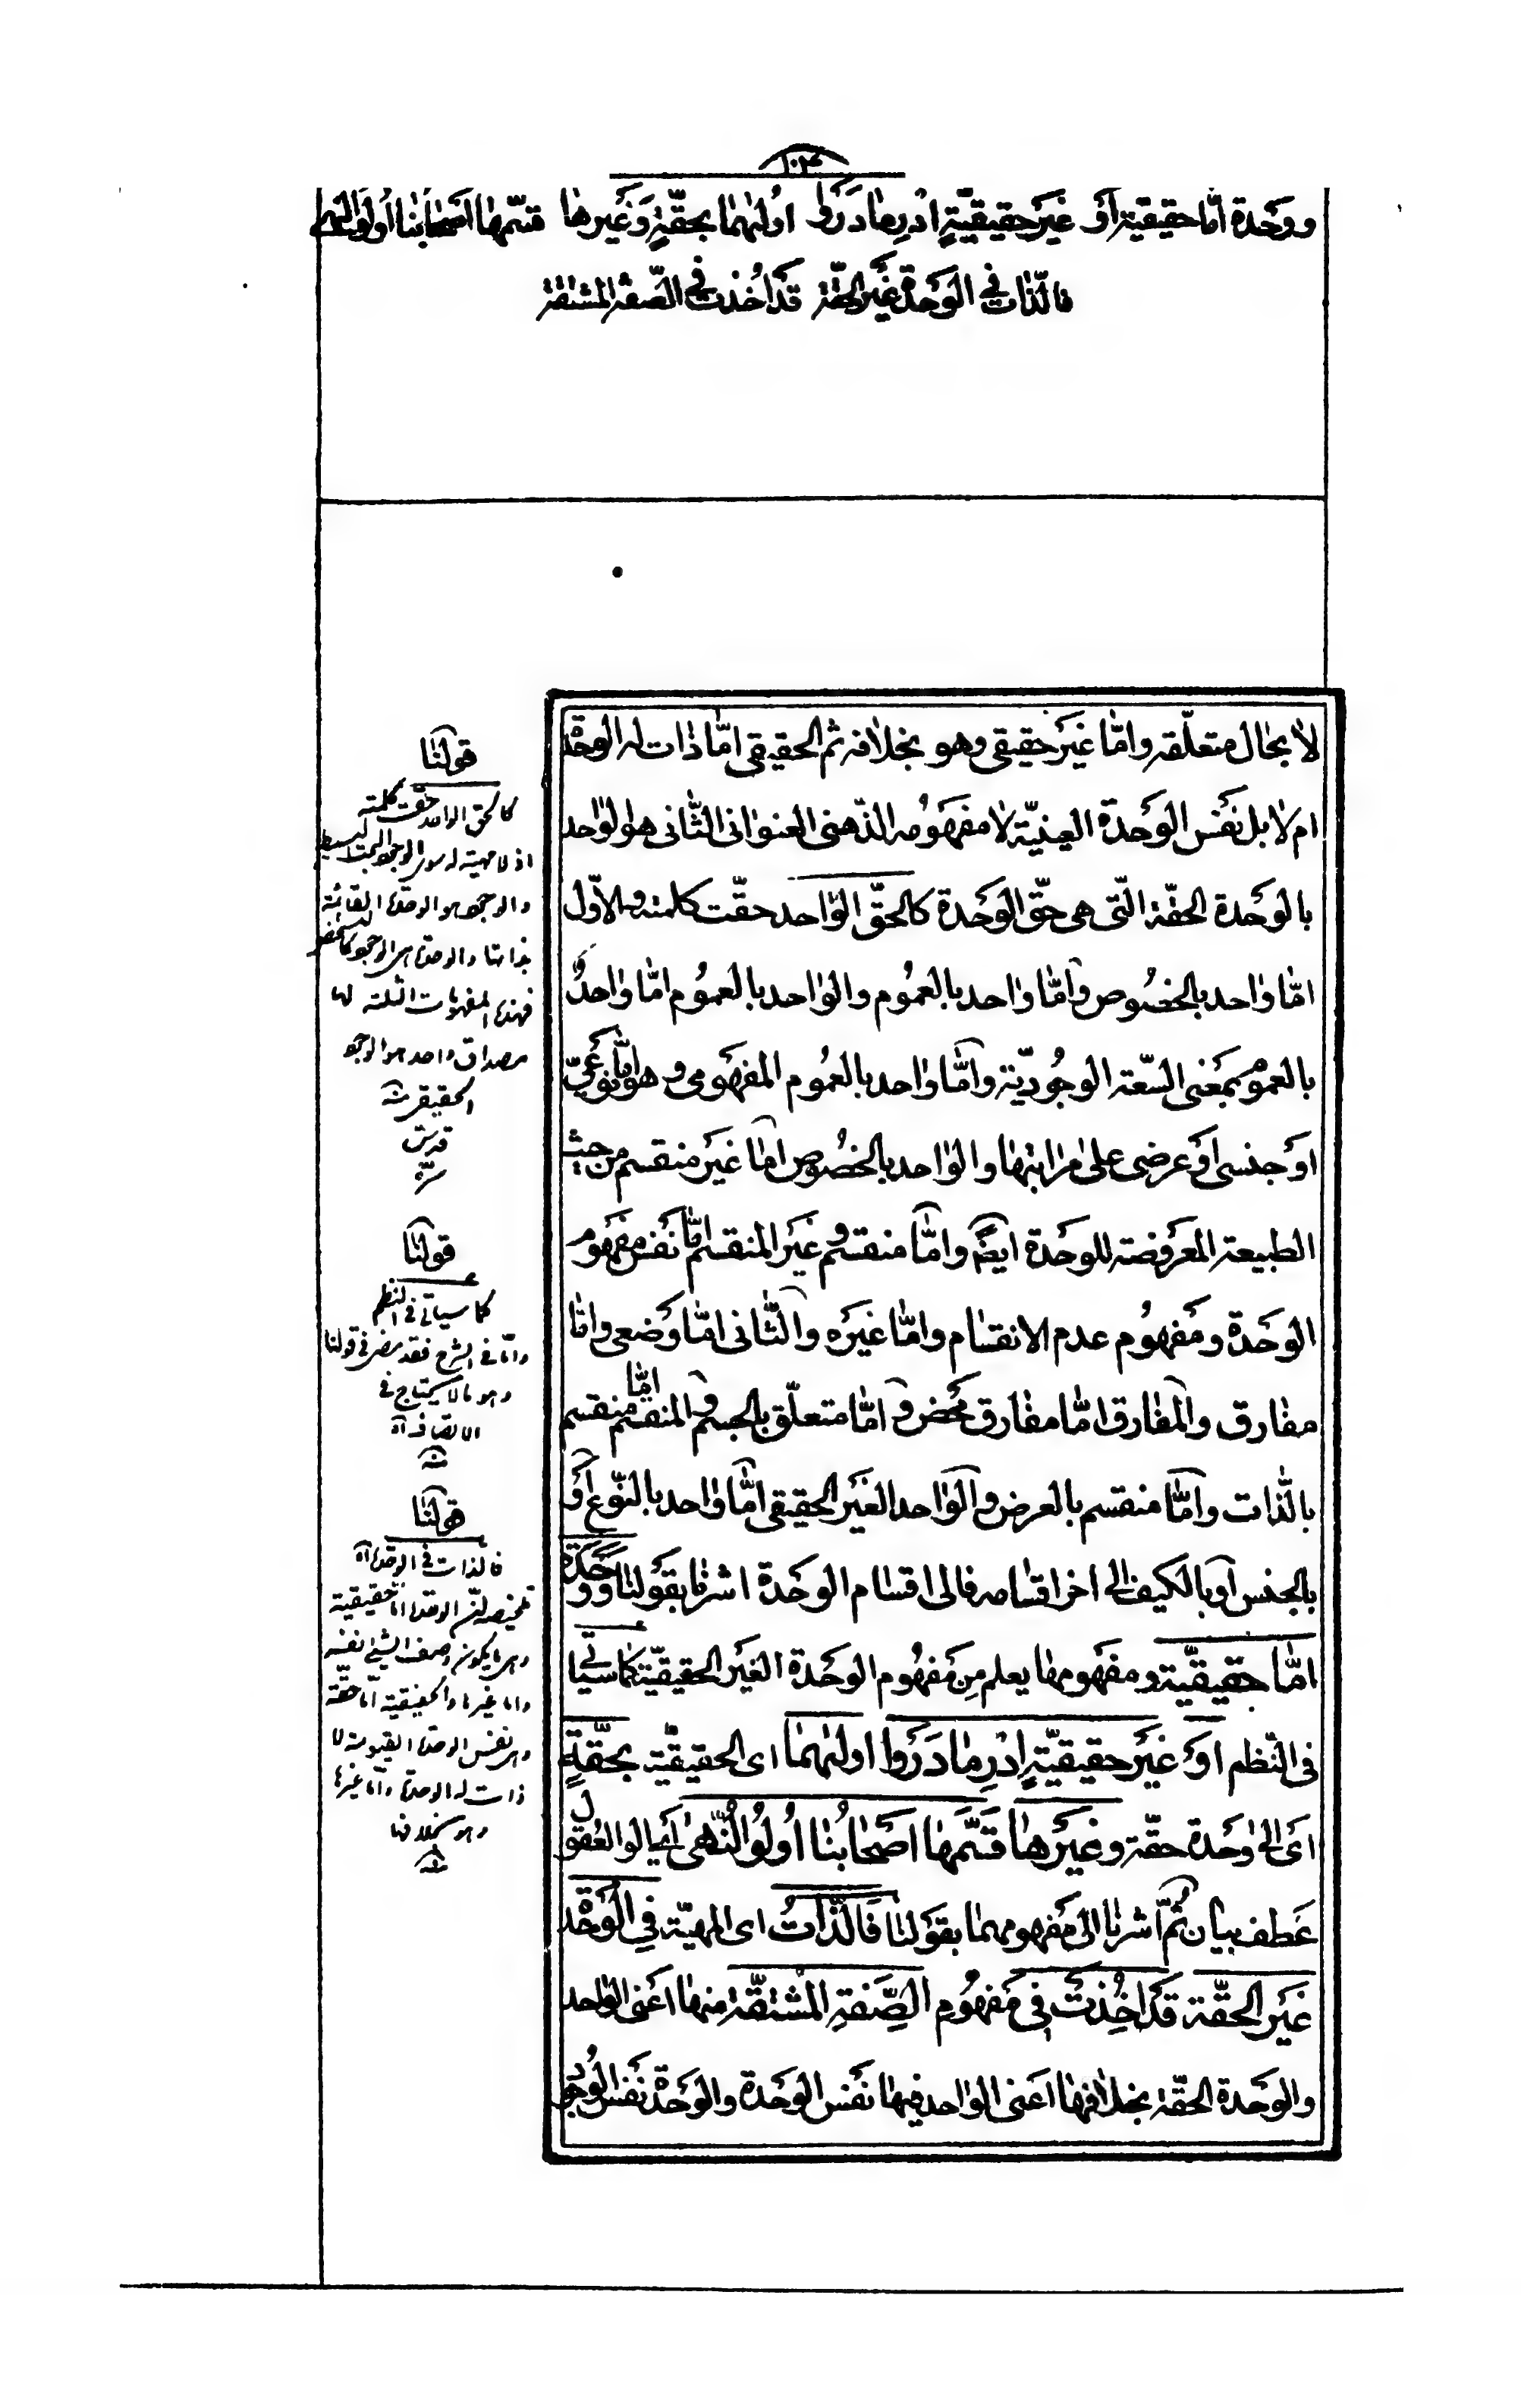 ١٠٣
ووحدة امّا حقيقيّة أو غير حقيقيّةٍ ادرِ ما دَرَوا اوليهما بحقّةٍ وغيرها قسّمها اصحابنا أولو النهى
فالذّات في الوحدة غير الحقّة قد اُخذت في الصّفة المشتقّة
لا بحال متعلّقه وامّا غير حقيقي وهو بخلافه ثم الحقيقي امّا ذات له الوحدة
ام لا بل نفس الوحدة العينيّة لا مفهومه الذّهني العنواني الثّاني هو الواحد
بالوحدة الحقّة الّتي هي حقّ الوحدة كالحقّ الواحد حقّت كلمته والاوّل
امّا واحد بالخصوص وامّا واحد بالعموم والواحد بالعموم امّا واحدٌ
بالعموم بمعنى السّعة الوجوديّة وامّا واحد بالعموم المفهومي وهو امّا نوعيّ
او جنسي او عرضي على مراتبها والواحد بالخصوص اما غير منقسم من حيث
الطبيعة المعروضة للوحدة ايضًا وامّا منقسم وغير المنقسم امّا نفس مفهوم
الوحدة ومفهوم عدم الانقسام وامّا غيره والثّاني امّا وضعي وامّا
مفارق والمفارق امّا مفارق محض وامّا متعلّق بالجسم والمنقسم امّا منقسم
بالذّات وامّا منقسم بالعرض والواحد الغير الحقيقي امّا واحد بالنّوع أو
بالجنس او بالكيف الى اخر اقسامه فالى اقسام الوحدة اشرنا بقولنا ووحدة
امّا حقيقيّة ومفهومها يعلم من مفهوم الوحدة الغير الحقيقيّة كما سيأتي
في النّظم او غير حقيقيّةٍ ادرِ ما دَرَوا اوليهما اى الحقيقيّة بحقّةٍ
اى الى وحدة حقّة وغيرها قسّمها اصحابُنا اُولُو النُّهى اى اولو العقول
عطف بيان ثمّ اشرنا الى مفهومهما بقولنا فالذّاتُ اى المهيّة في الوحدة
غير الحقّة قد اُخِذت في مفهوم الصِّفةِ المشتقّة منها اعنى الواحد
والوحدة الحقّة بخلافها اعنى الواحد فيها نفس الوحدة والوحدة نفس الوجود
قولنا
كالحق الواحد حقت كلمته
اذ لا مهية له سوى الوجود البحت البسيط
والوجود هو الوحدة القائمة
بذاتها والوحدة هى الوجود كالتشخص
فهذه المفهومات الثلثة لها
مصداق واحد هو الوجود
الحقيقى منه
قدس
سرّه
قولنا
كما سيأتي في النظم
وامّا في الشرح فقد مضى في قولنا
وهو ما لا يحتاج في
الاتصاف آه
منه
قولنا
فالذات في الوحدة آه
تلخيصه ان الوحدة اما حقيقية
وهى ما يكون وصف الشئ نفسه
واما غيرها والحقيقية امّا حقّة
وهى نفس الوحدة القيومية لا
ذات له الوحدة وامّا غيرها
وهو بخلافها
منه